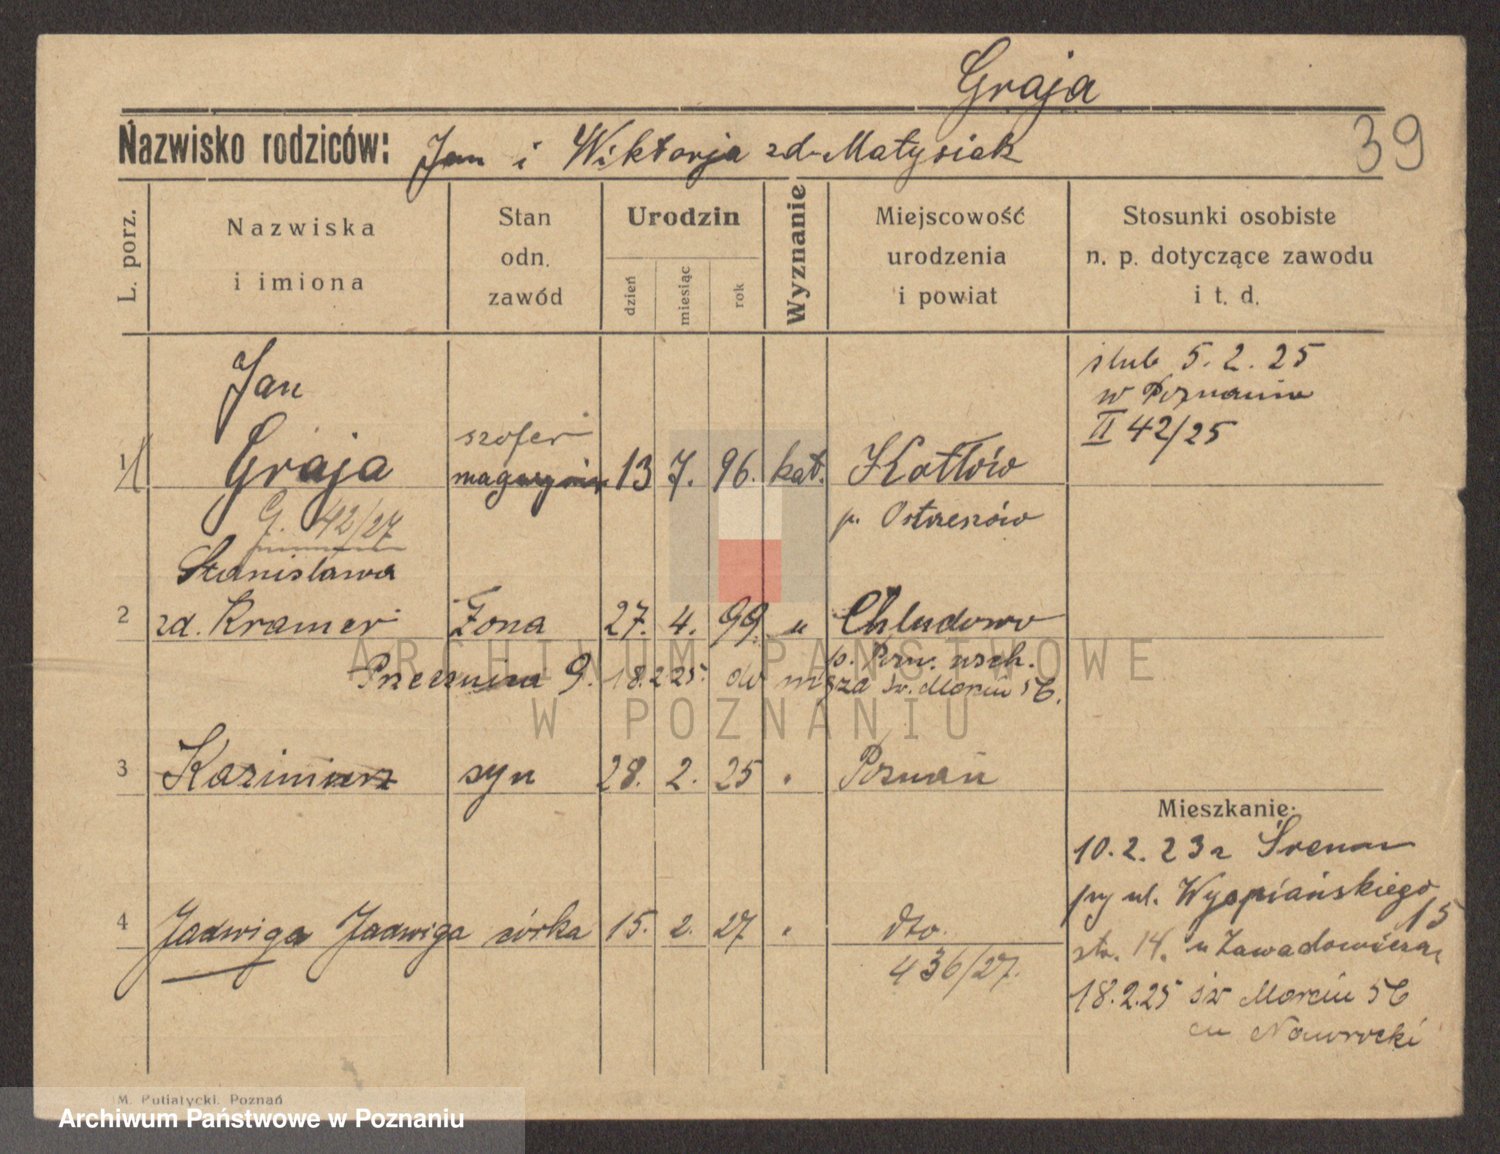 Graja
39
Nazwisko rodziców: Jan i Wiktorja zd. Matysiak
L. porz.
Nazwiska
i imiona
Stan
odn.
zawód
Urodzin
dzień
miesiąc
rok
Wyznanie
Miejscowość
urodzenia
i powiat
Stosunki osobiste
n. p. dotyczące zawodu
i t. d.
ślub 5. 2. 25
w Poznaniu
II 42/25
Jan
szofer
1 Graja 13 7. 96. kat. Kotłów
G. 42/27
p. Ostrzeszów
Stanisława
2 zd. Kramer Żona 27. 4. 99. " Chludowo
p. Pozn. wsch.
Przecznica 9. 18.2 25. do męża św. Marcin 56.
3 Kazimierz syn 28. 2. 25 " Poznań
Mieszkanie:
10. 2. 23 z Śremu
przy ul. Wyspiańskiego 15
4 Jadwiga Jadwiga córka 15. 2. 27 " dto.
436/27.
str. 14. u Zawadowicza
18.2.25 św Marcin 56
Nawrocki
M. Putiatycki, Poznań
ARCHIWUM PAŃSTWOWE
W POZNANIU
Archiwum Państwowe w Poznaniu